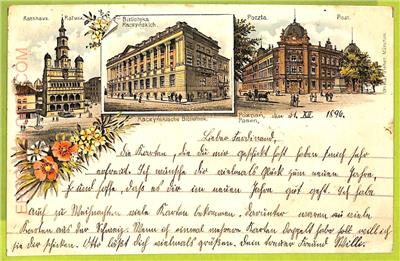 Rathhaus. Ratusz.
Biblioteka Raczyńskich.
Poczta. Post.
Raczyńskische Bibliothek.
Poznań, Posen, den 31. XII 1896.
Lieber Ferdinand,
Die Karten, die du mir geschickt hast haben mich sehr
erfreut. Ich wünsche dir vielmals Glück zum neuen Jahre,
und hoffe, daß es dir im neuen Jahre gut geht. Ich habe
auch zu Weihnachten viele Karten bekommen, darunter waren so viele
Karten aus der Schweiz. Wenn ich einmal mehrere Karten doppelt habe
sie dir schicken. Otto läßt Dich vielmals grüßen. Dein Freund Willi.